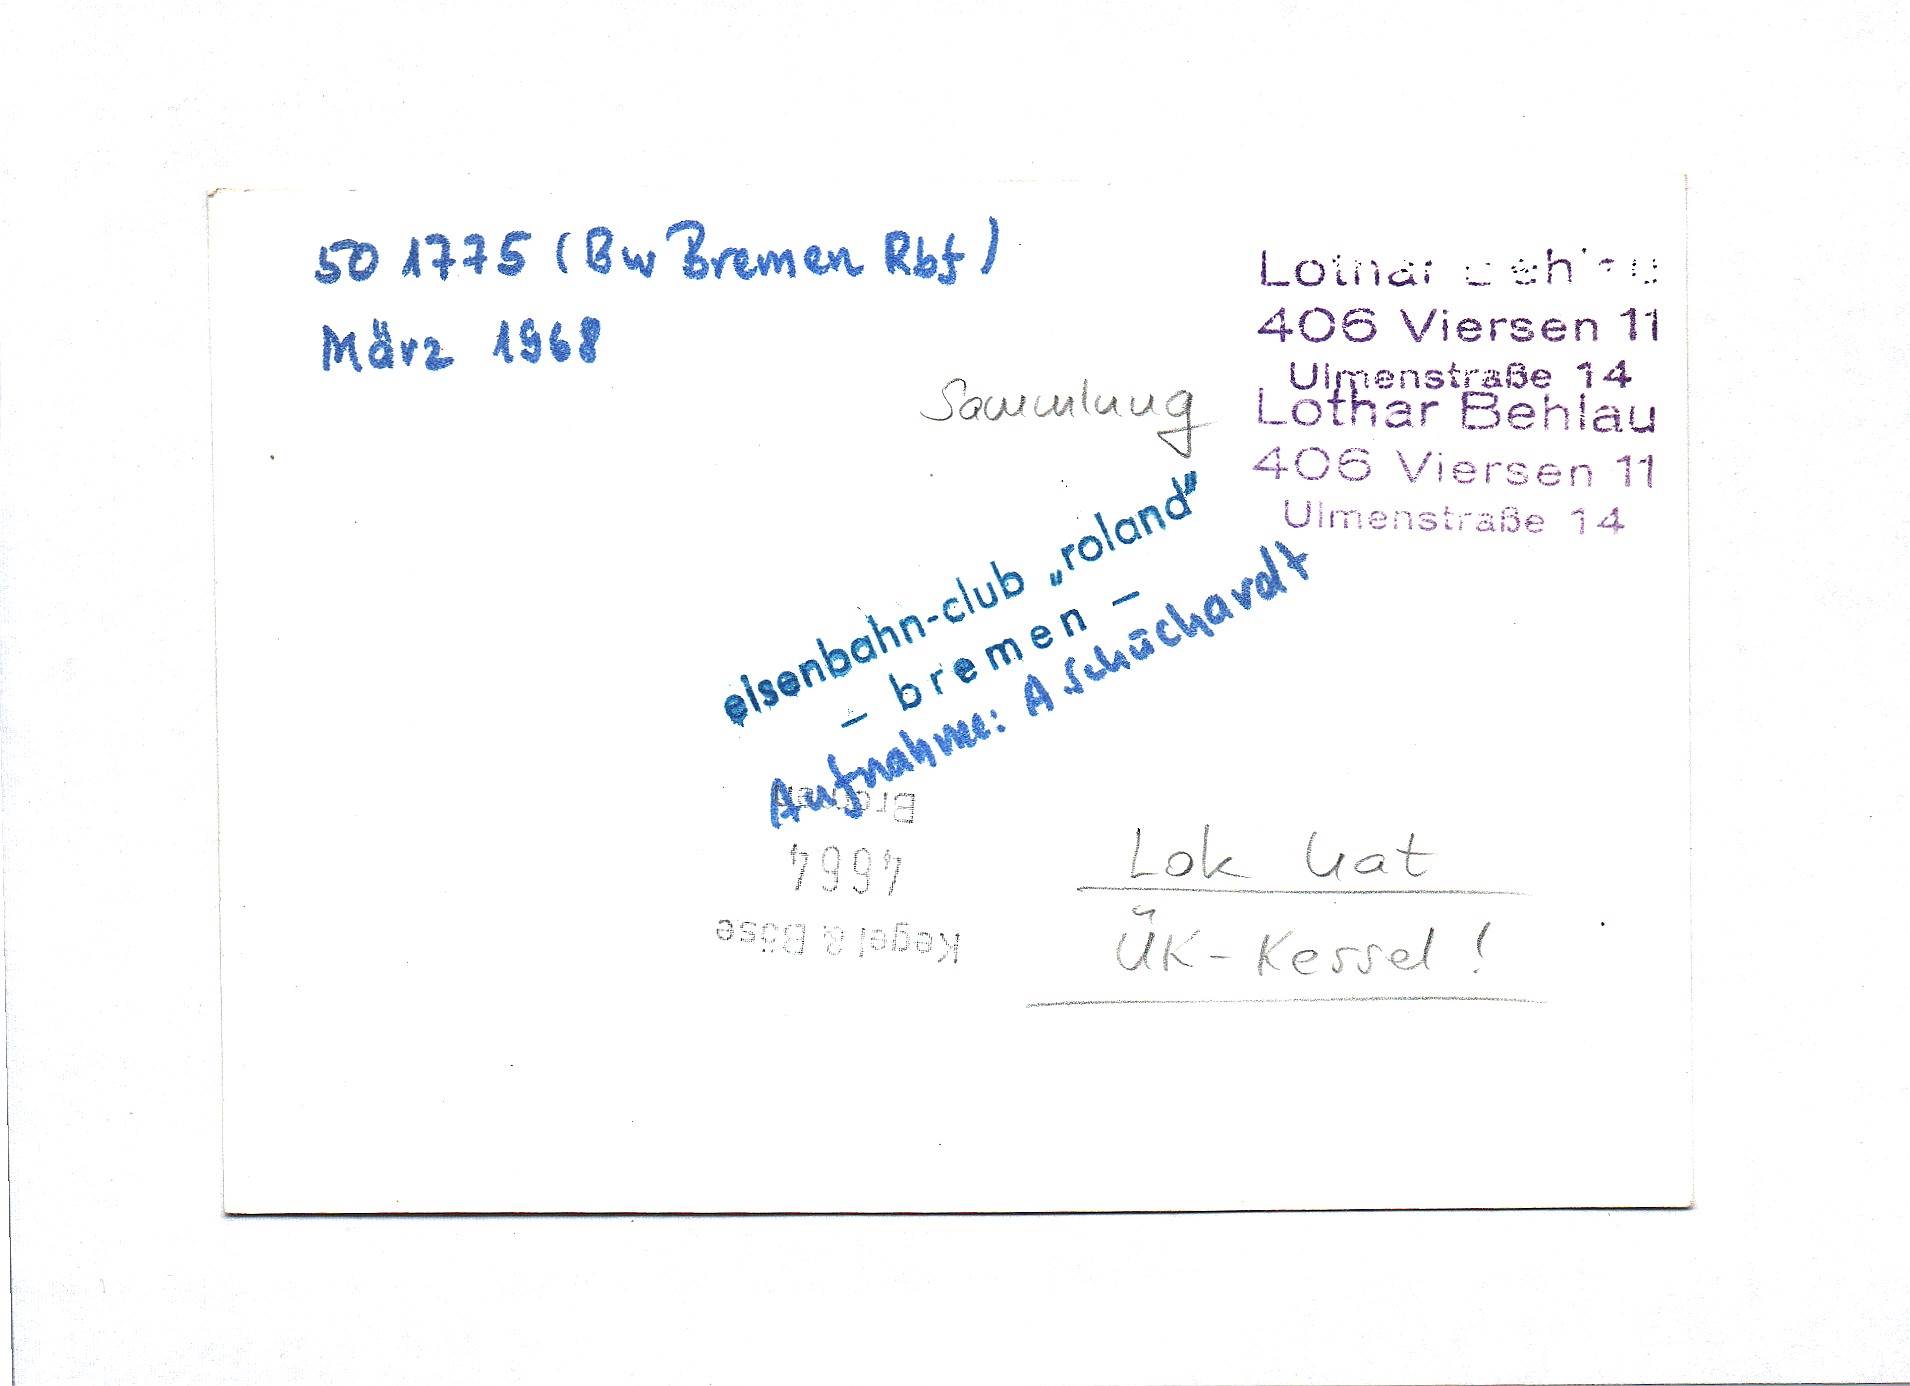 50 1775 (Bw Bremen Rbf)
März 1968
Sammlung
Lothar Behlau
406 Viersen 11
Ulmenstraße 14
Lothar Behlau
406 Viersen 11
Ulmenstraße 14
eisenbahn-club „roland“
– bremen –
Aufnahme: A Schūchardt
Lok hat
ÜK-Kessel!
Kegel & Böse
4664
Bremen